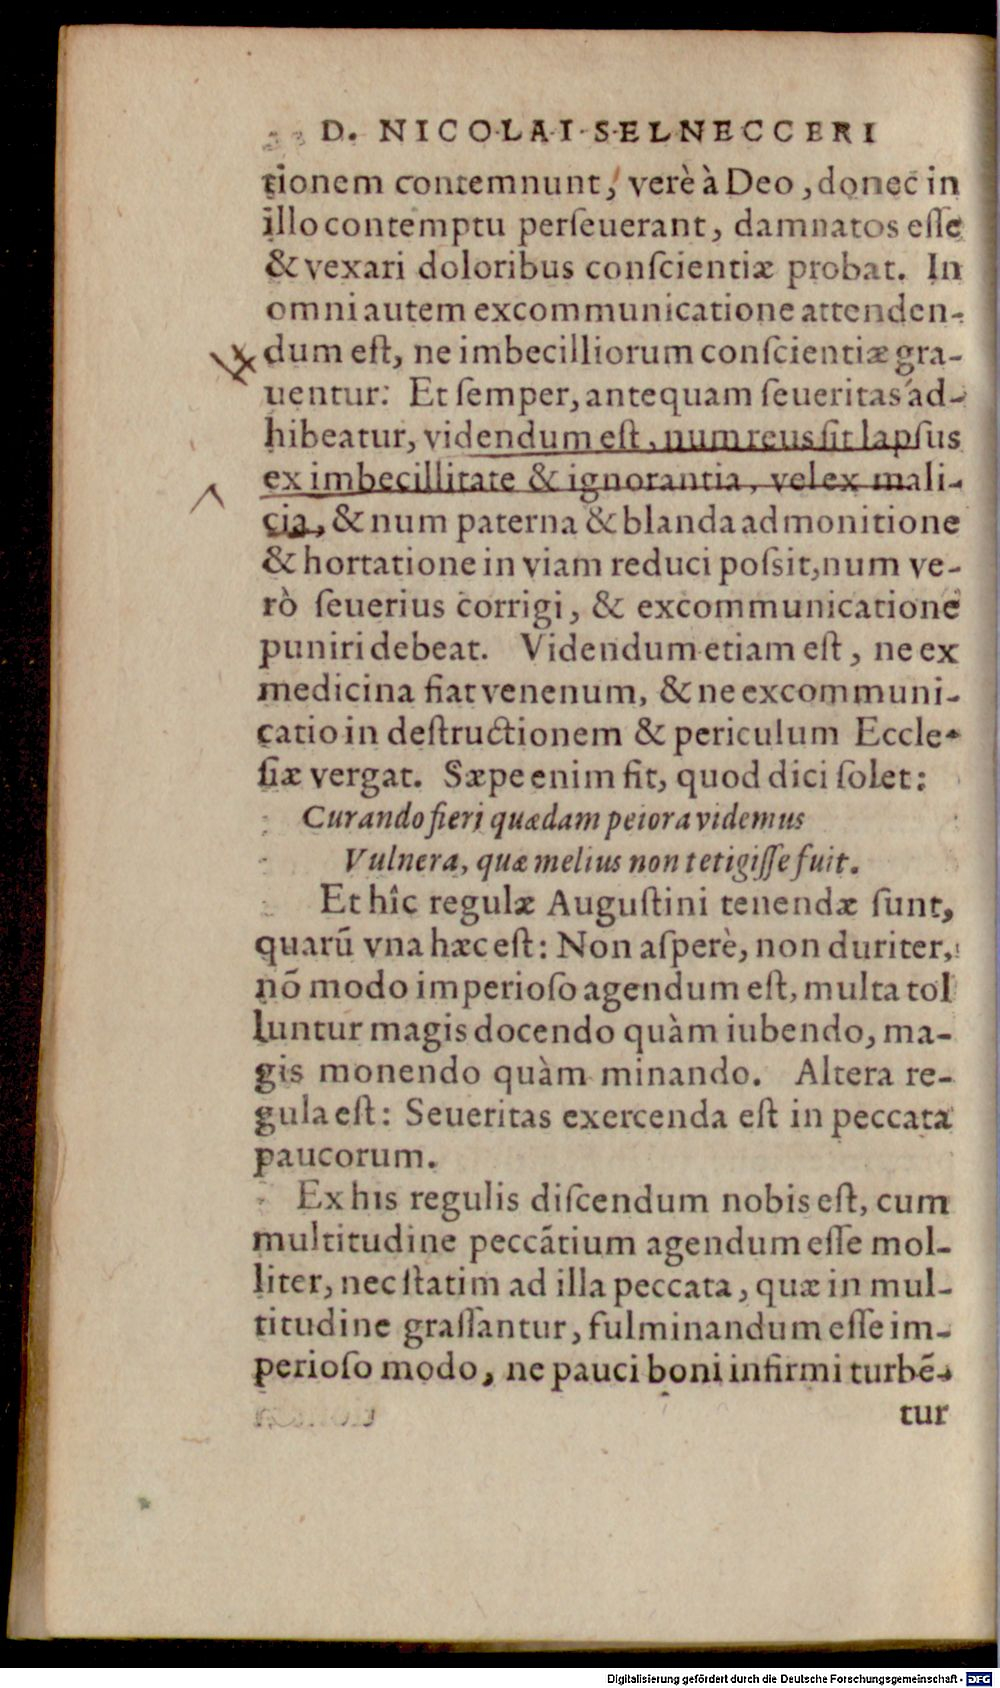 D. NICOLAI SELNECCERI
tionem contemnunt, verè à Deo, donec in
illo contemptu perſeuerant, damnatos eſſe
& vexari doloribus conſcientiæ probat. In
omni autem excommunicatione attenden-
dum eſt, ne imbecilliorum conſcientiæ gra-
uentur: Et ſemper, antequam ſeueritas ad-
hibeatur, videndum eſt, num reus ſit lapſus
ex imbecillitate & ignorantia, vel ex mali-
cia, & num paterna & blanda admonitione
& hortatione in viam reduci poſsit, num ve-
rò ſeuerius corrigi, & excommunicatione
puniri debeat. Videndum etiam eſt, ne ex
medicina fiat venenum, & ne excommuni-
catio in deſtructionem & periculum Eccle-
ſiæ vergat. Sæpe enim fit, quod dici ſolet:
Curando fieri quædam peiora videmus
Vulnera, quæ melius non tetigiſſe fuit.
Et hîc regulæ Auguſtini tenendæ ſunt,
quarū vna hæc eſt: Non aſperè, non duriter,
nō modo imperioſo agendum eſt, multa tol
luntur magis docendo quàm iubendo, ma-
gis monendo quàm minando. Altera re-
gula eſt: Seueritas exercenda eſt in peccata
paucorum.
Ex his regulis diſcendum nobis eſt, cum
multitudine peccātium agendum eſſe mol-
liter, nec ſtatim ad illa peccata, quæ in mul-
titudine graſſantur, fulminandum eſſe im-
perioſo modo, ne pauci boni infirmi turbē-
tur
Digitalisierung gefördert durch die Deutsche Forschungsgemeinschaft - DFG